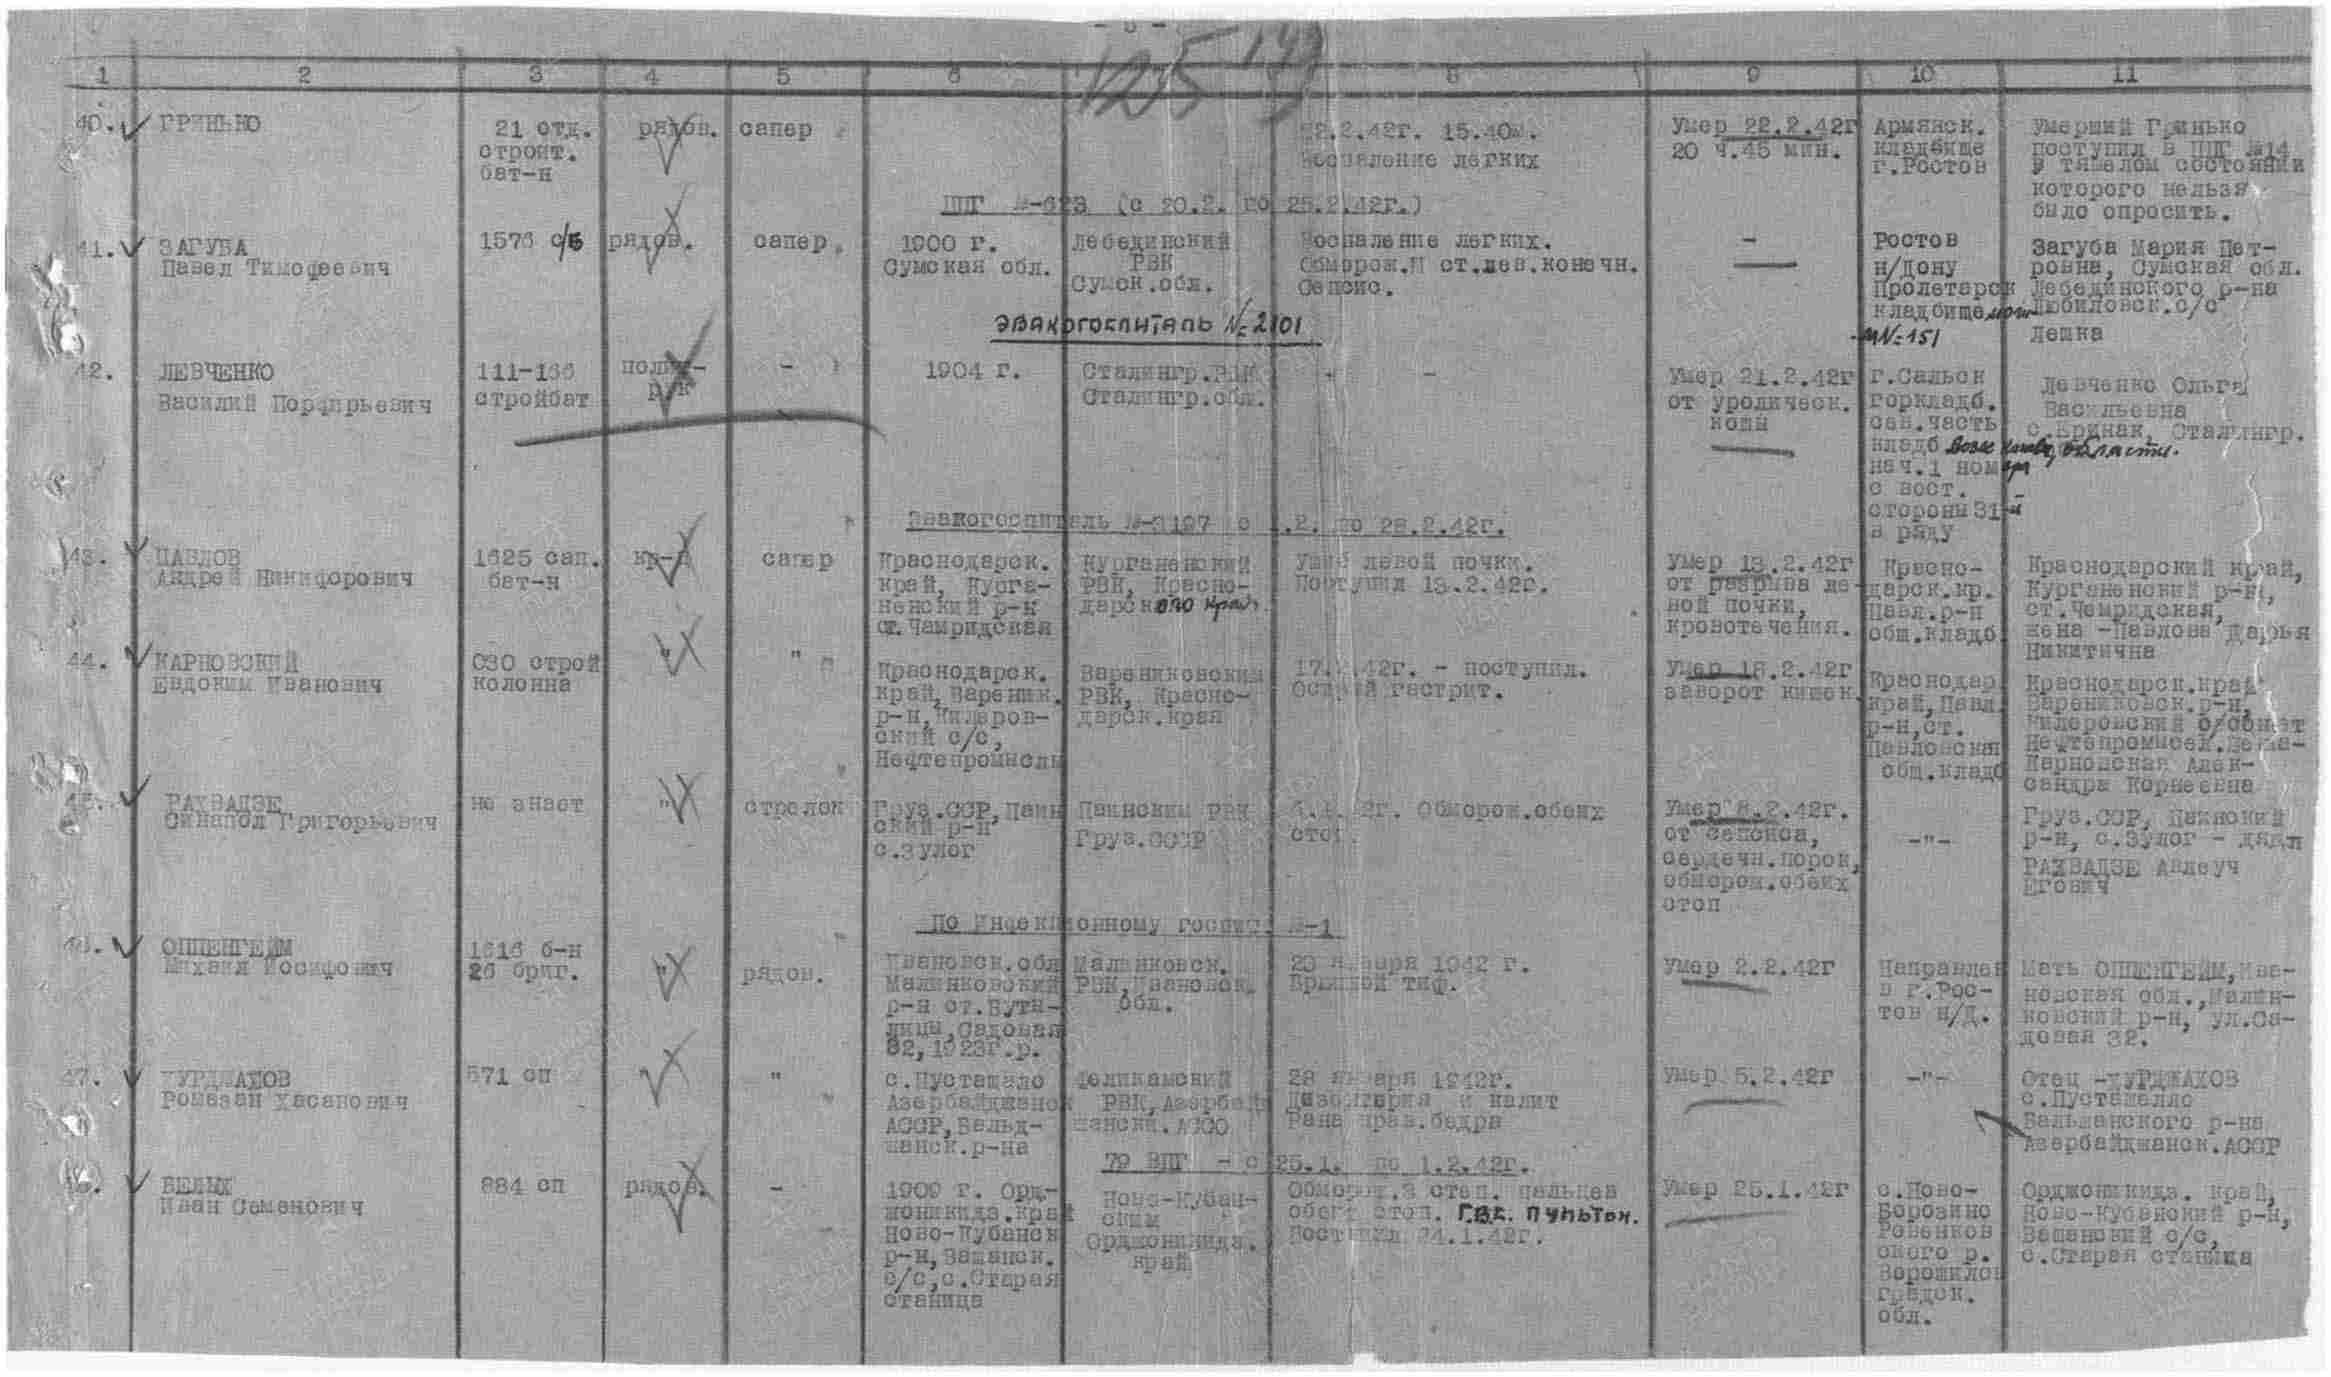 125
1 2 3 4 5 6 8 9 10 11
40. ГРИНЬКО
21 отд.
строит.
бат-н
рядов. сапер
22.2.42г. 15.40м.
Воспаление легких
Умер 22.2.42г
20 ч.45 мин.
Армянск.
кладбище
г.Ростов
Умерший Гринько
поступил в ППГ №14
в тяжелом состоянии
которого нельзя
было опросить.
ППГ №-623 (с 20.2. по 25.2.42г.)
41. ЗАГУБА
Павел Тимофеевич
1576 с/б рядов. сапер
1900 г.
Сумская обл.
Лебединский
РВК
Сумск.обл.
Воспаление легких.
Обморож.II ст.лев.конечн.
Сепсис.
-
Ростов
н/Дону
Пролетарск
кладбище мог
-№-151
Загуба Мария Пет-
ровна, Сумская обл.
Лебединского р-на
Любиловск.с/с
Лешка
ЭВАКОГОСПИТАЛЬ №-2101
42. ЛЕВЧЕНКО
Василий Порфирьевич
111-166
стройбат
полит-
р/к
-
1904 г.
Сталингр.РВК
Сталингр.обл.
- -
Умер 21.2.42г
от уролическ.
комы
г.Сальск
горкладб.
сев.часть
кладб
нач.1 номера
с вост.
стороны 31-й
в ряду
Левченко Ольга
Васильевна
с.Кринак, Сталингр.
области.
Эвакогоспиталь №-3197 с 1.2. по 28.2.42г.
43. ПАВЛОВ
Андрей Никифорович
1625 сап.
бат-н
кр-ц
сапер
Краснодарск.
край, Курга-
ненский р-н
ст.Чамридская
Курганенский
РВК, Красно-
дарского края.
Ушиб левой почки.
Поступил 13.2.42г.
Умер 13.2.42г
от разрыва ле-
вой почки,
кровотечения.
Красно-
дарск.кр.
Павл.р-н
общ.кладб.
Краснодарский край,
Курганенский р-н,
ст.Чемридская,
жена -Павлова Дарья
Никитична
44. КАРНОВСКИЙ
Евдоким Иванович
030 строй
колонна
" "
Краснодарск.
край, Вареник.
р-н, Киларов-
ский с/с,
Нефтепромыслы
Варениковским
РВК, Красно-
дарск.края
17.2.42г. - поступил.
Острый гастрит.
Умер 18.2.42г
заворот кишек.
Краснодар.
край, Павл.
р-н, ст.
Павловская
общ.кладб
Краснодарск.край
Варениковск.р-н,
Киларовский с/совет
Нефтепромысел.Жена-
Карновская Алек-
сандра Корнеевна
45. РАХВАДЗЕ
Синапол Григорьевич
не знает
"
стрелок
Груз.ССР, Цаин
ский р-н
с.Зулог
Цаинским РВК
Груз.ССР
6.2.42г. Обморож.обеих
стоп.
Умер 8.2.42г.
от сепсиса,
сердечн.порок,
обморож.обеих
стоп
-"-
Груз.ССР, Цаинский
р-н, с.Зулог - дядя
РАХВАДЗЕ Авлеуч
Егович
По Инфекционному госпит. №-1
46. ОППЕНГЕЙМ
Михаил Иосифович
1616 б-н
26 бриг.
"
рядов.
Ивановск.обл
Малинковский
р-н ст.Буты-
лицы, Садовая
32, 1923г.р.
Малинковск.
РВК, Ивановск.
обл.
20 января 1942 г.
Брюшной тиф.
Умер 2.2.42г
Направлен
в г.Рос-
тов н/Д.
Мать ОППЕНГЕЙМ, Ива-
новская обл., Малин-
ковский р-н, ул.Са-
довая 32.
47. КУРДЖАХОВ
Ромазан Хасанович
571 сп
" "
с.Пусташало
Азербайджанск
АССР, Вельд-
жанск.р-на
Феликамский
РВК, Азербайд
жанскк.АССО
28 января 1942г.
Дизентерия и калит
Рана прав.бедра
Умер 5.2.42г
-"-
Отец -КУРДЖАХОВ
с.Пусташалло
Бальжанского р-на
Азербайджанск.АССР
79 ВПГ - с 25.1. по 1.2.42г.
48. БЕЛЫХ
Иван Семенович
884 сп
рядов.
-
1909 г. Орд-
жоникидз.край
Ново-Кубанск
р-н, Ващанск.
с/с, с.Старая
станица
Ново-Кубан-
ским
Орджоникидз.
край
Обморож.3 степ. пальцев
обеих стоп. ГВС. ПУЛЬТОН.
Поступил 24.1.42г.
Умер 25.1.42г
с.Ново-
Борозино
Ровенков
ского р.
Ворошилов
градск.
обл.
Орджоникидз. край,
Ново-Кубанский р-н,
Ващанский с/с,
с.Старая станица